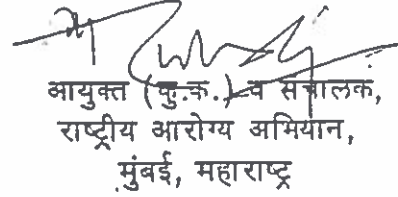 आयुक्त (कु.क.) व संचालक,
राष्ट्रीय आरोग्य अभियान,
मुंबई, महाराष्ट्र